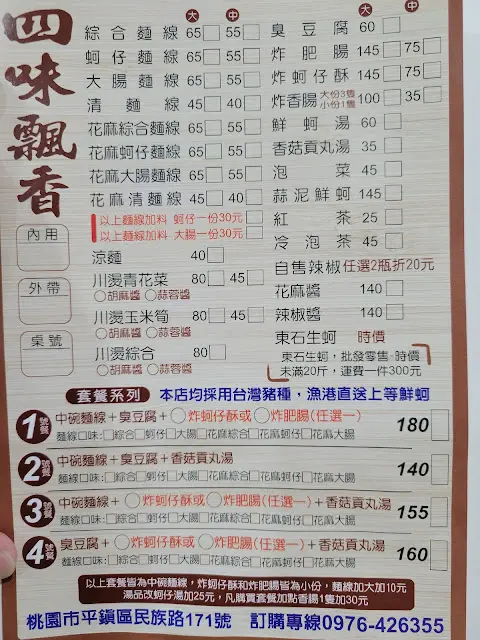 四味飄香
內用
外帶
桌號
大 中
綜合麵線 65 55
蚵仔麵線 65 55
大腸麵線 65 55
清麵線 45 40
花麻綜合麵線 65 55
花麻蚵仔麵線 65 55
花麻大腸麵線 65 55
花麻清麵線 45 40
以上麵線加料 蚵仔一份30元
以上麵線加料 大腸一份30元
涼麵 40
川燙青花菜 80 45
胡麻醬 蒜蓉醬
川燙玉米筍 80 45
胡麻醬 蒜蓉醬
川燙綜合 80
胡麻醬 蒜蓉醬
大 中
臭豆腐 60
炸肥腸 145 75
炸蚵仔酥 145 75
炸香腸 大份3隻 小份1隻 100 35
鮮蚵湯 60
香菇貢丸湯 35
泡菜 45
蒜泥鮮蚵 145
紅茶 25
冷泡茶 45
自售辣椒 任選2瓶折20元
花麻醬 140
辣椒醬 140
東石生蚵 時價
東石生蚵，批發零售，時價
未滿20斤，運費一件300元
套餐系列 本店均採用台灣豬種，漁港直送上等鮮蚵
1號餐 中碗麵線+臭豆腐+○炸蚵仔酥或○炸肥腸(任選一) 180
麵線口味:□綜合□蚵仔□大腸□花麻綜合□花麻蚵仔□花麻大腸
2號餐 中碗麵線+臭豆腐+香菇貢丸湯 140
麵線口味:□綜合□蚵仔□大腸□花麻綜合□花麻蚵仔□花麻大腸
3號餐 中碗麵線+○炸蚵仔酥或○炸肥腸(任選一)+香菇貢丸湯 155
麵線口味:□綜合□蚵仔□大腸□花麻綜合□花麻蚵仔□花麻大腸
4號餐 臭豆腐+○炸蚵仔酥或○炸肥腸(任選一)+香菇貢丸湯 160
麵線口味:□綜合□蚵仔□大腸□花麻綜合□花麻蚵仔□花麻大腸
以上套餐皆為中碗麵線，炸蚵仔酥和炸肥腸皆為小份，麵線加大加10元
湯品改蚵仔湯加25元，凡購買套餐加點香腸1隻加30元
桃園市平鎮區民族路171號 訂購專線0976-426355